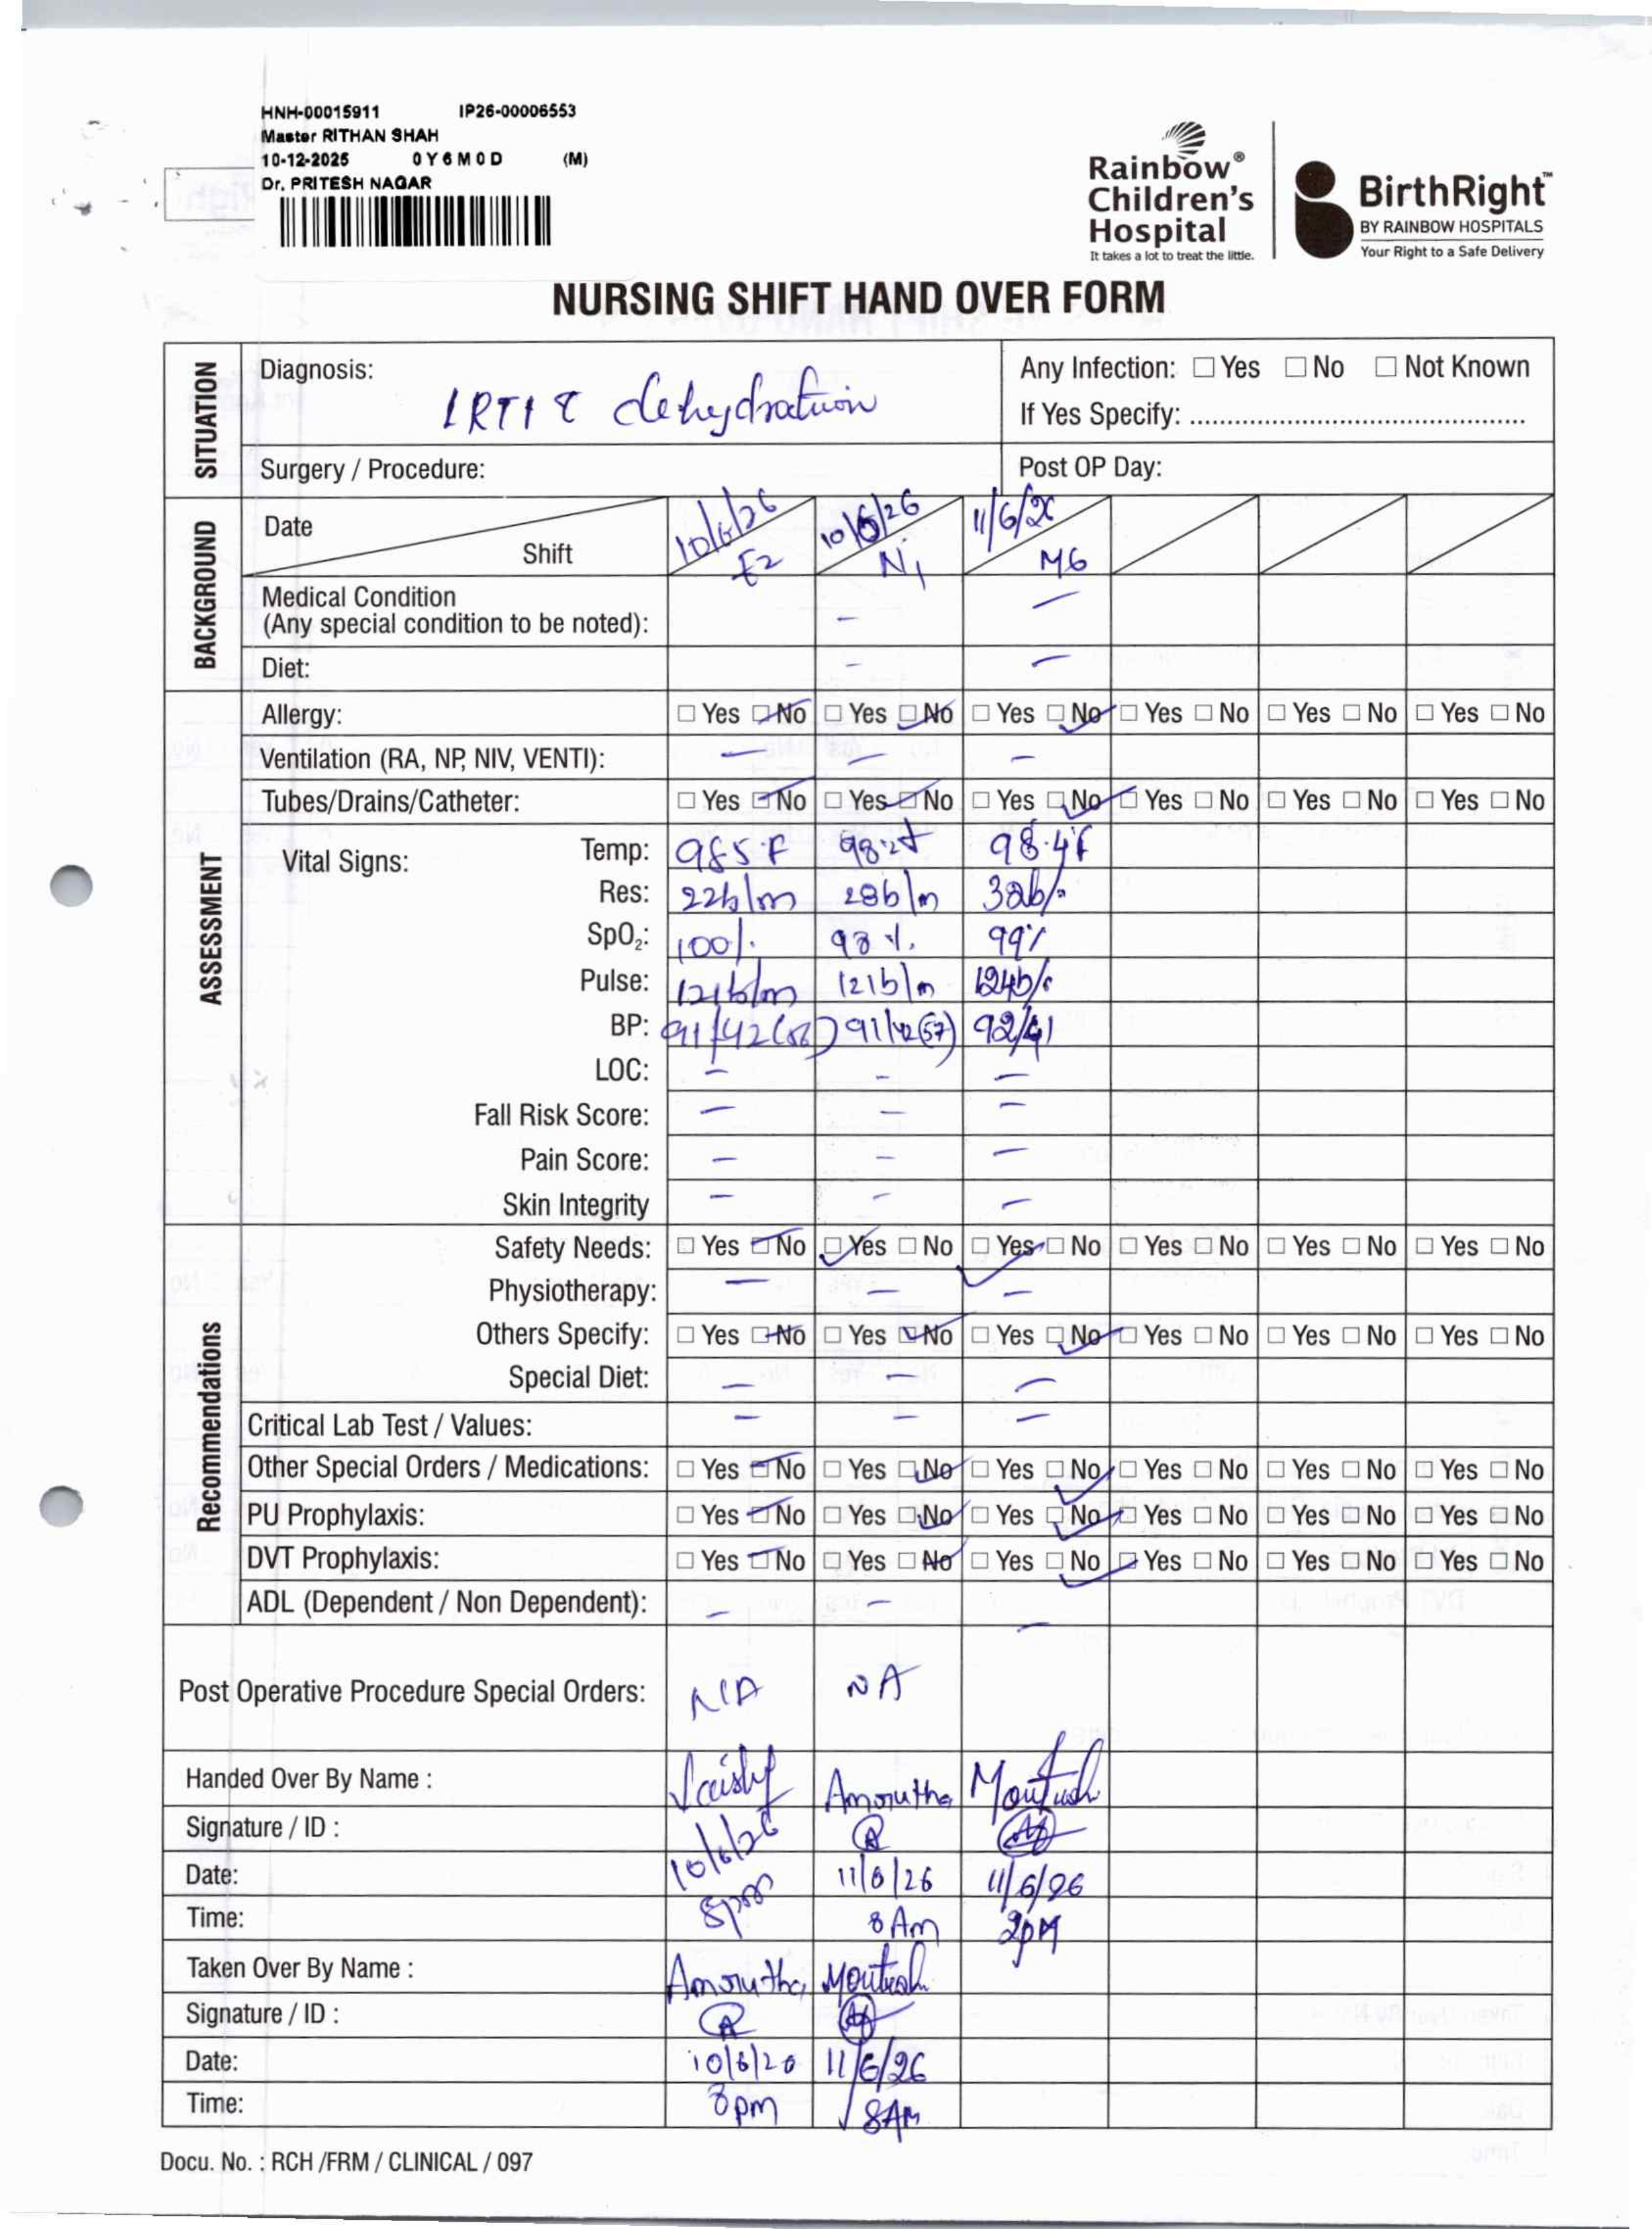 HNH-00015911 IP26-00006553
Master RITHAN SHAH
10-12-2025 0Y6M0D (M)
Dr. PRITESH NAGAR
Rainbow® Children's Hospital
It takes a lot to treat the little.
BirthRight™
BY RAINBOW HOSPITALS
Your Right to a Safe Delivery
NURSING SHIFT HAND OVER FORM
SITUATION
Diagnosis: LRTI c dehydration
Any Infection: ☐ Yes ☐ No ☐ Not Known
If Yes Specify: ............................................
Surgery / Procedure: Post OP Day:
BACKGROUND
Date 10/6/26 10/6/26 11/6/26
Shift E2 N1 M6
Medical Condition
(Any special condition to be noted): - -
Diet: - -
ASSESSMENT
Allergy: ☐ Yes ☑ No ☐ Yes ☑ No ☐ Yes ☑ No ☐ Yes ☐ No ☐ Yes ☐ No ☐ Yes ☐ No
Ventilation (RA, NP, NIV, VENTI): - - -
Tubes/Drains/Catheter: ☐ Yes ☑ No ☐ Yes ☑ No ☐ Yes ☑ No ☐ Yes ☐ No ☐ Yes ☐ No ☐ Yes ☐ No
Vital Signs: Temp: 98.5°F 98.2°F 98.4°F
Res: 22b/m 28b/m 32b/m
SpO₂: 100% 98% 99%
Pulse: 121b/m 121b/m 124b/m
BP: 91/42(56) 91/42(57) 92/41
LOC: - - -
Fall Risk Score: - - -
Pain Score: - - -
Skin Integrity - - -
Recommendations
Safety Needs: ☐ Yes ☑ No ☑ Yes ☐ No ☑ Yes ☐ No ☐ Yes ☐ No ☐ Yes ☐ No ☐ Yes ☐ No
Physiotherapy: - - -
Others Specify: ☐ Yes ☑ No ☐ Yes ☑ No ☐ Yes ☑ No ☐ Yes ☐ No ☐ Yes ☐ No ☐ Yes ☐ No
Special Diet: - - -
Critical Lab Test / Values: - - -
Other Special Orders / Medications: ☐ Yes ☑ No ☐ Yes ☑ No ☐ Yes ☑ No ☐ Yes ☐ No ☐ Yes ☐ No ☐ Yes ☐ No
PU Prophylaxis: ☐ Yes ☑ No ☐ Yes ☑ No ☐ Yes ☑ No ☐ Yes ☐ No ☐ Yes ☐ No ☐ Yes ☐ No
DVT Prophylaxis: ☐ Yes ☑ No ☐ Yes ☑ No ☐ Yes ☑ No ☐ Yes ☐ No ☐ Yes ☐ No ☐ Yes ☐ No
ADL (Dependent / Non Dependent): - - -
Post Operative Procedure Special Orders: N/A NA
Handed Over By Name : Amrutha
Signature / ID :
Date: 10/6/26 11/6/26 11/6/26
Time: 8pm 8Am 2pM
Taken Over By Name : Amrutha
Signature / ID :
Date: 10/6/26 11/6/26
Time: 8pm 8AM
Docu. No. : RCH /FRM / CLINICAL / 097